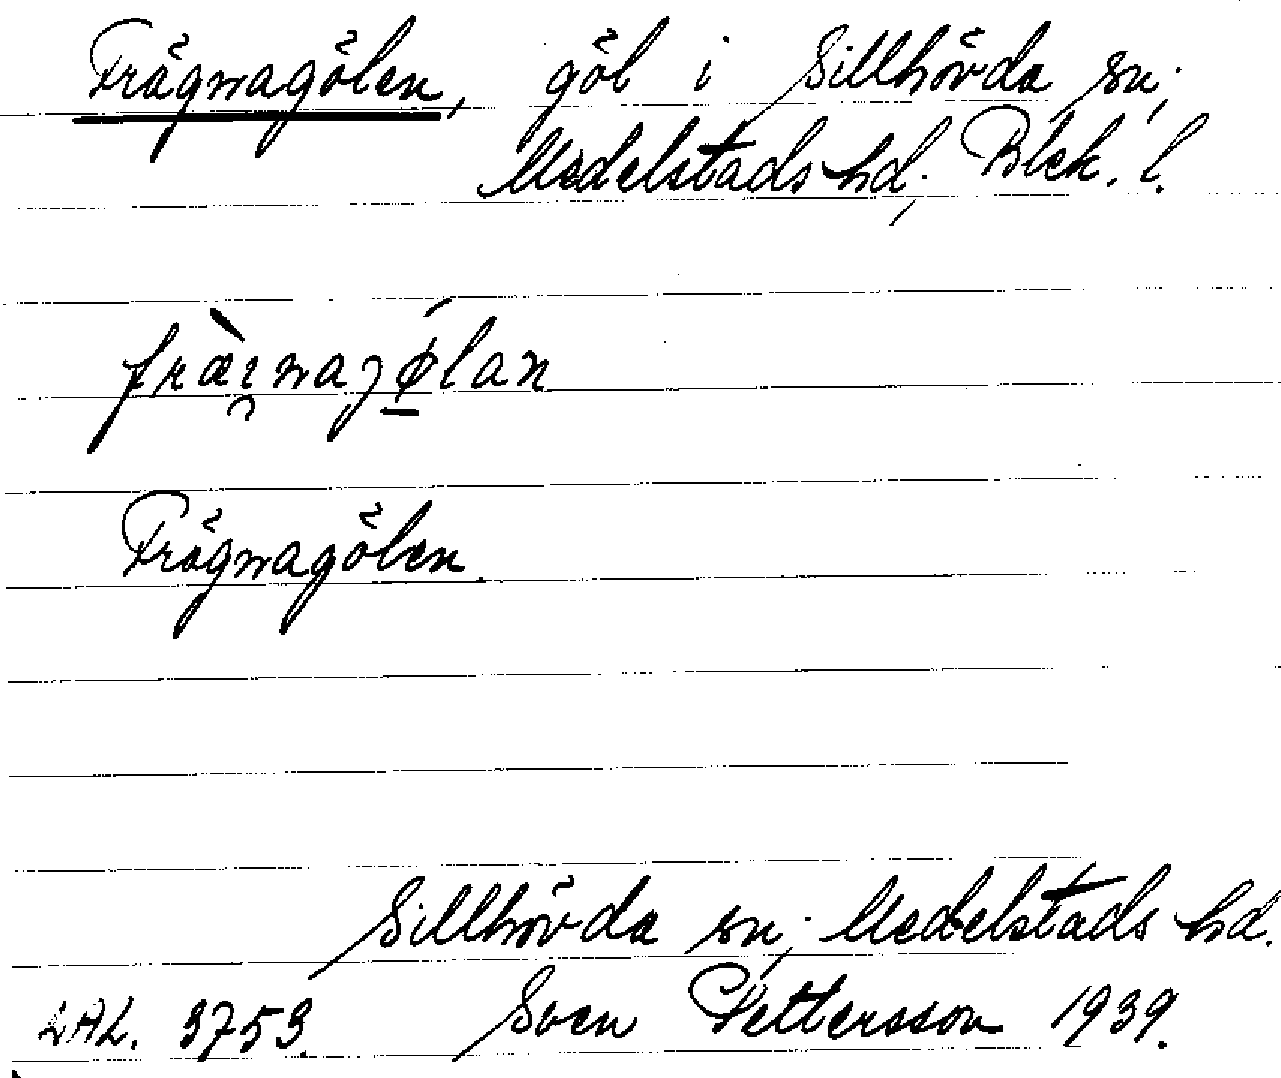 Frägnagölen, göl i Sillhövda sn;
Medelstads hd; Blek. l.
fræ̀ı̯naɡǿ̠lan
Frägnagölen.
Sillhövda sn; Medelstads hd.
LAL. 3753. Sven Pettersson 1939.